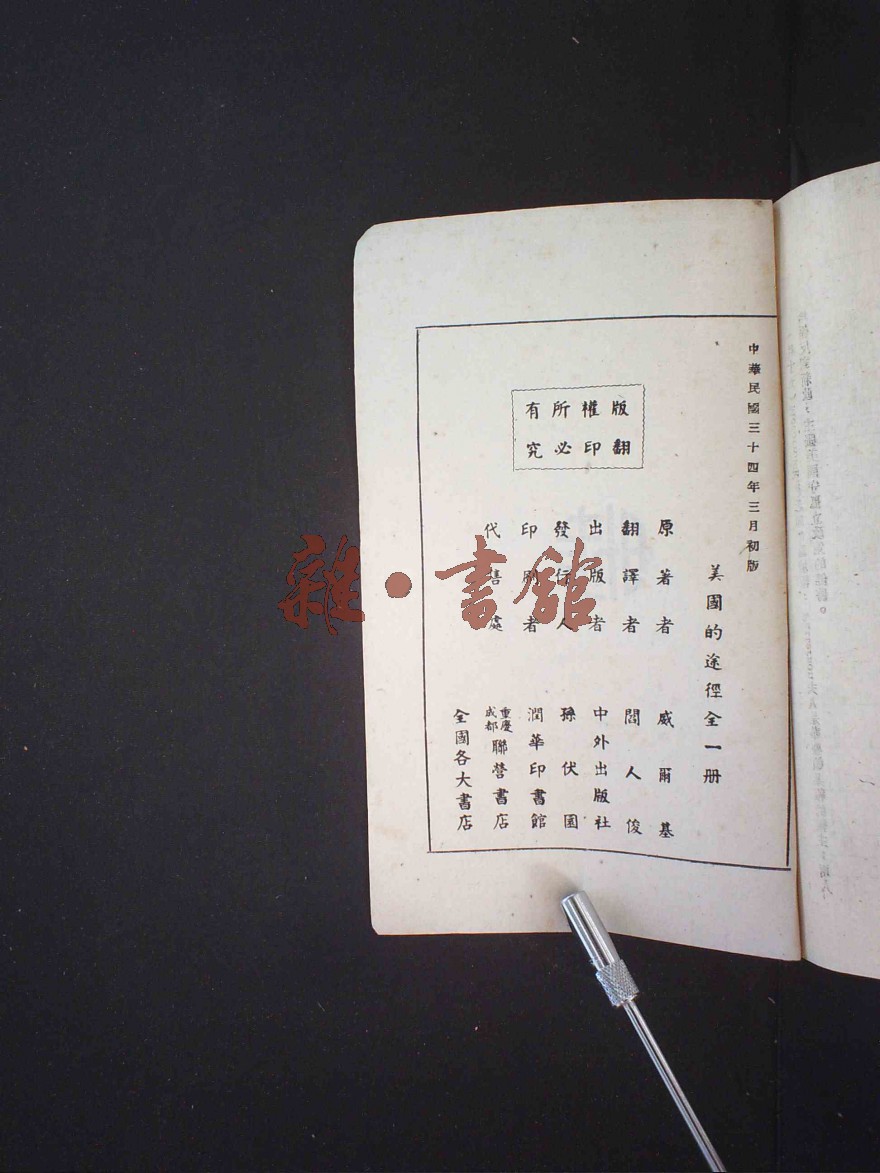 中華民國三十四年三月初版
美國的途徑全一册
版權所有
翻印必究
原著者 威爾基
翻譯者 閻人俊
出版者 中外出版社
發行人 孫伏園
印刷者 潤華印書館
代售處 重慶成都聯營書店
全國各大書店
雜·書館